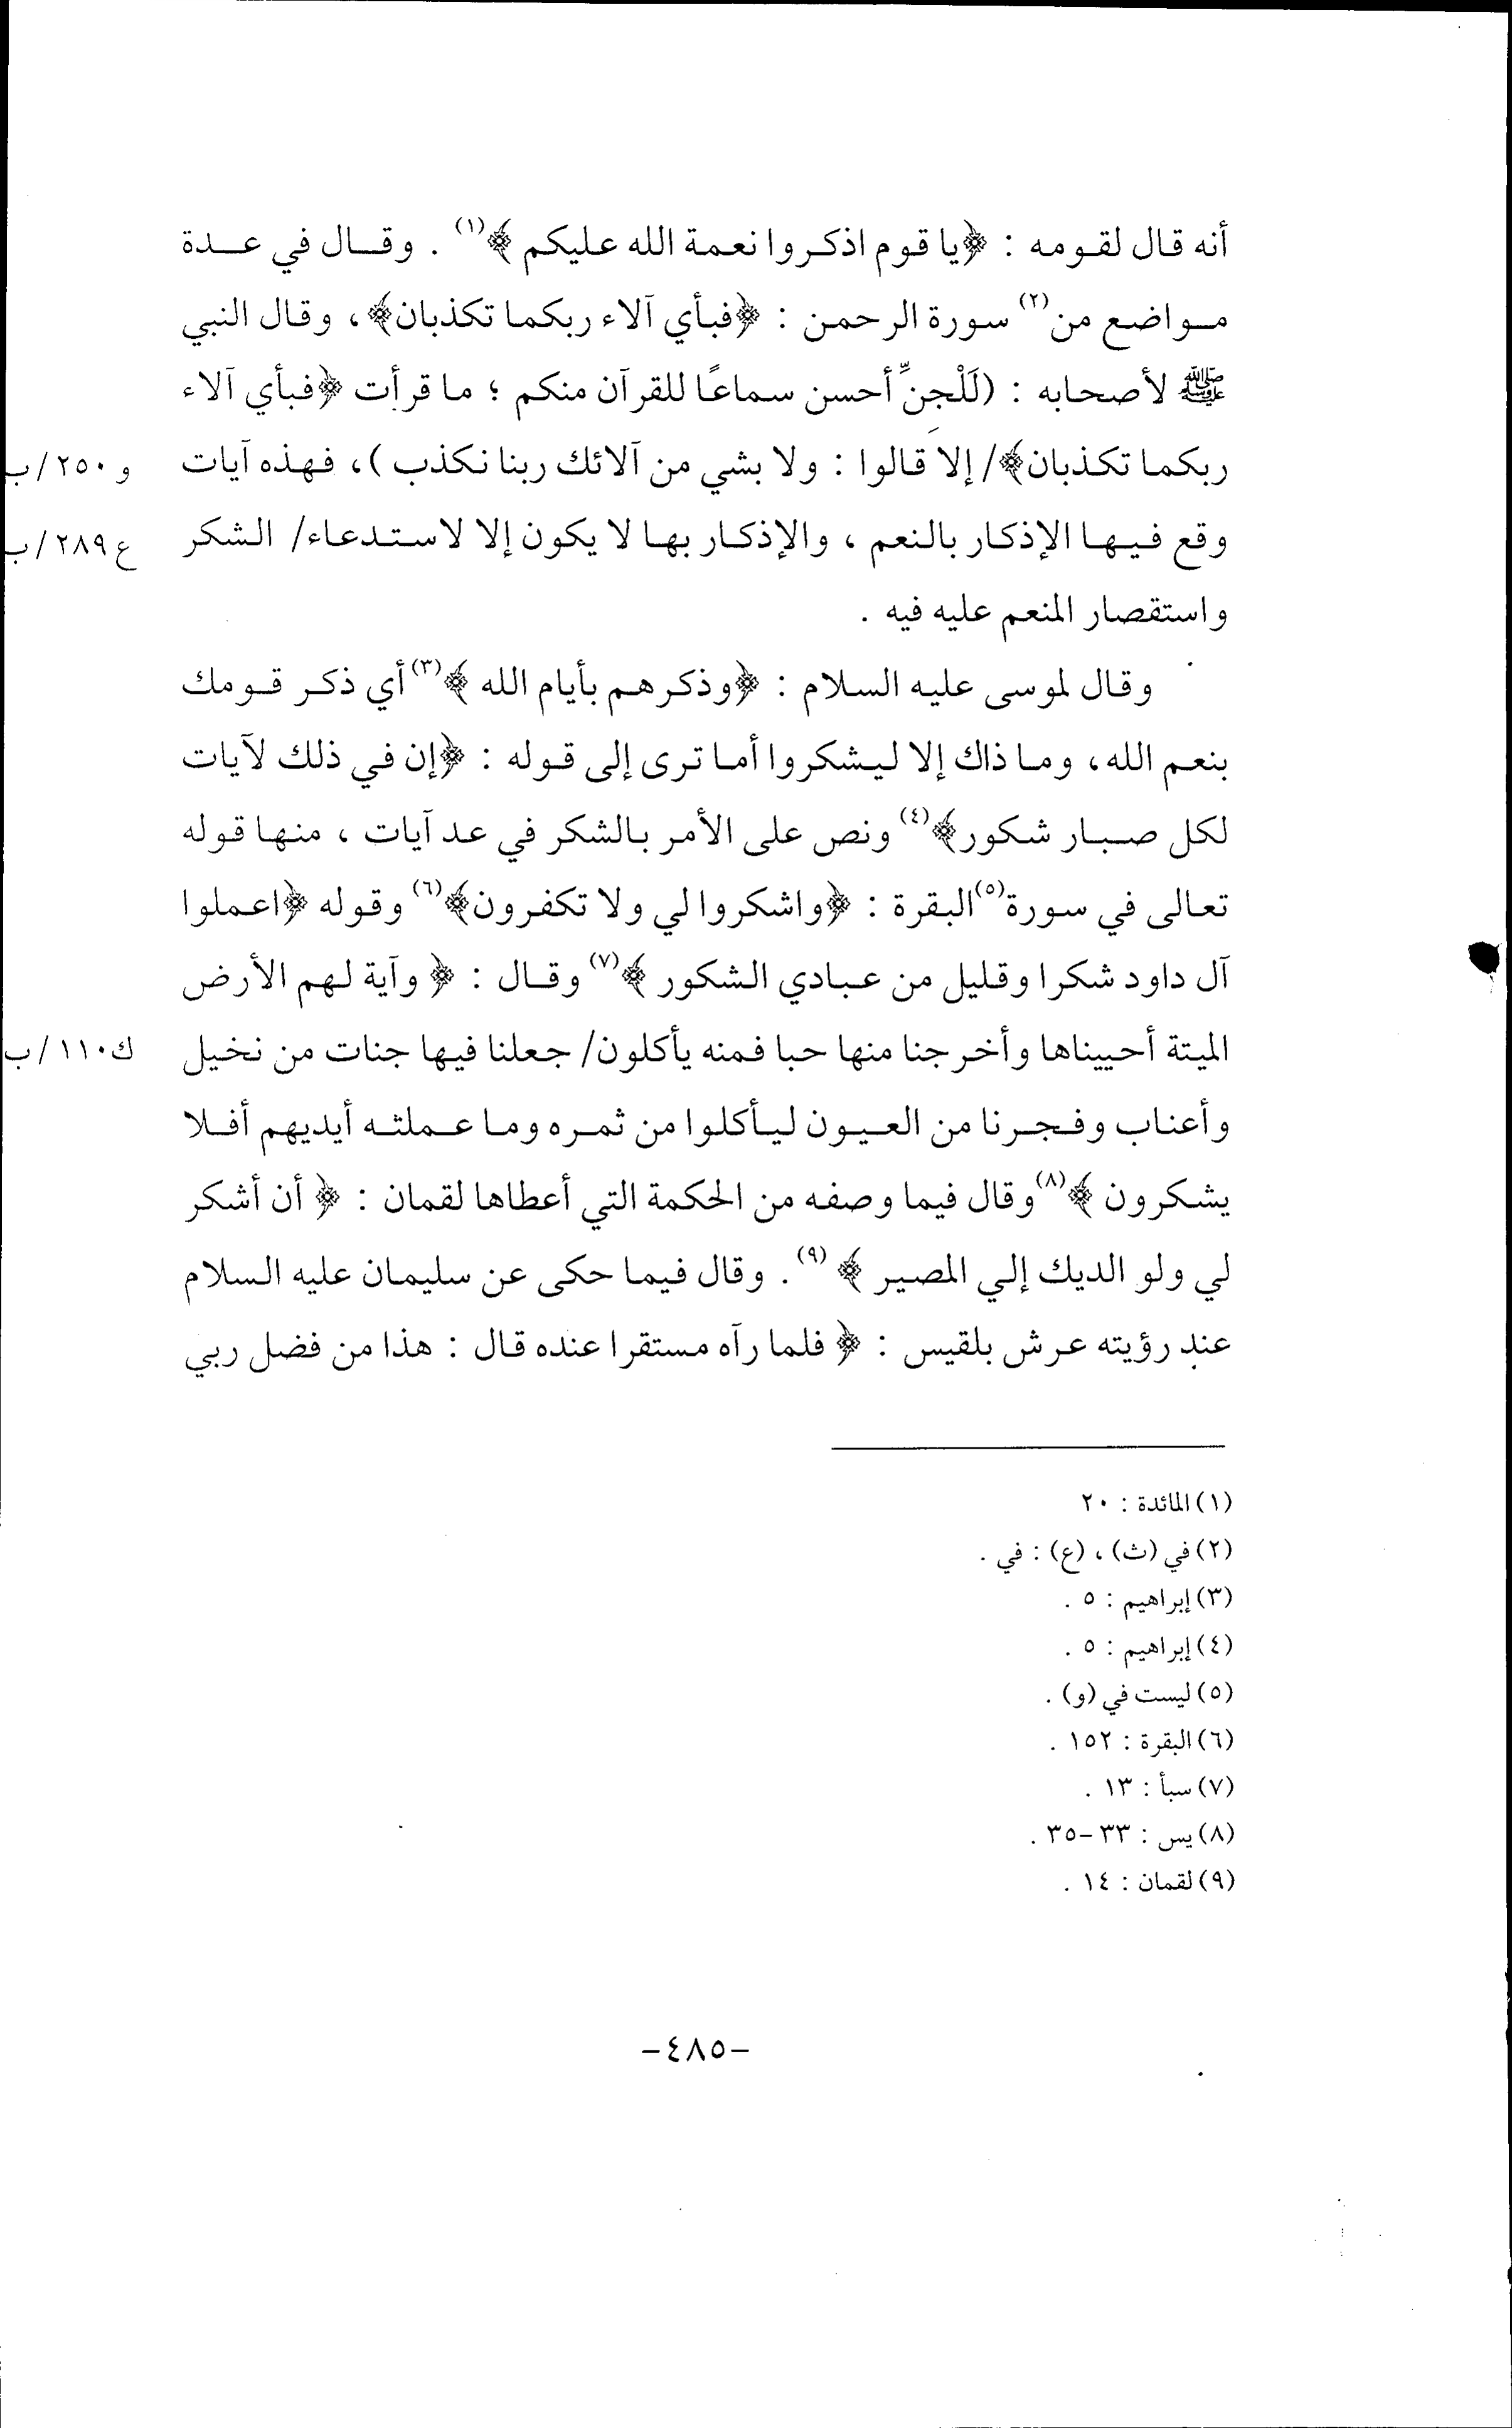 أنه قال لقومه : ﴿يا قوم اذكروا نعمة الله عليكم ﴾(١) . وقال في عدة
مواضع من(٢) سورة الرحمن : ﴿فبأي آلاء ربكما تكذبان﴾، وقال النبي
ﷺ لأصحابه : (لَلْجِنِّ أحسن سماعًا للقرآن منكم ؛ ما قرأت ﴿فبأي آلاء
ربكما تكذبان﴾/ إلا قالوا : ولا بشي من آلائك ربنا نكذب )، فهذه آيات و٢٥٠/ب
وقع فيها الإذكار بالنعم ، والإذكار بها لا يكون إلا لاستدعاء/ الشكر ع٢٨٩/ب
واستقصار المنعم عليه فيه .
وقال لموسى عليه السلام : ﴿وذكرهم بأيام الله ﴾(٣) أي ذكر قومك
بنعم الله، وما ذاك إلا ليشكروا أما ترى إلى قوله : ﴿إن في ذلك لآيات
لكل صبار شكور﴾(٤) ونص على الأمر بالشكر في عد آيات ، منها قوله
تعالى في سورة(٥) البقرة : ﴿واشكروا لي ولا تكفرون﴾(٦) وقوله ﴿اعملوا
آل داود شكرا وقليل من عبادي الشكور ﴾(٧) وقال : ﴿ وآية لهم الأرض
الميتة أحييناها وأخرجنا منها حبا فمنه يأكلون/ جعلنا فيها جنات من نخيل ك١١٠/ب
وأعناب وفجرنا من العيون ليأكلوا من ثمره وما عملته أيديهم أفلا
يشكرون ﴾(٨) وقال فيما وصفه من الحكمة التي أعطاها لقمان : ﴿ أن أشكر
لي ولو الديك إلي المصير ﴾ (٩) . وقال فيما حكى عن سليمان عليه السلام
عند رؤيته عرش بلقيس : ﴿ فلما رآه مستقرا عنده قال : هذا من فضل ربي
(١) المائدة : ٢٠
(٢) في (ث) ، (ع) : في .
(٣) إبراهيم : ٥ .
(٤) إبراهيم : ٥ .
(٥) ليست في (و) .
(٦) البقرة : ١٥٢ .
(٧) سبأ : ١٣ .
(٨) يس : ٣٣-٣٥ .
(٩) لقمان : ١٤ .
-٤٨٥-